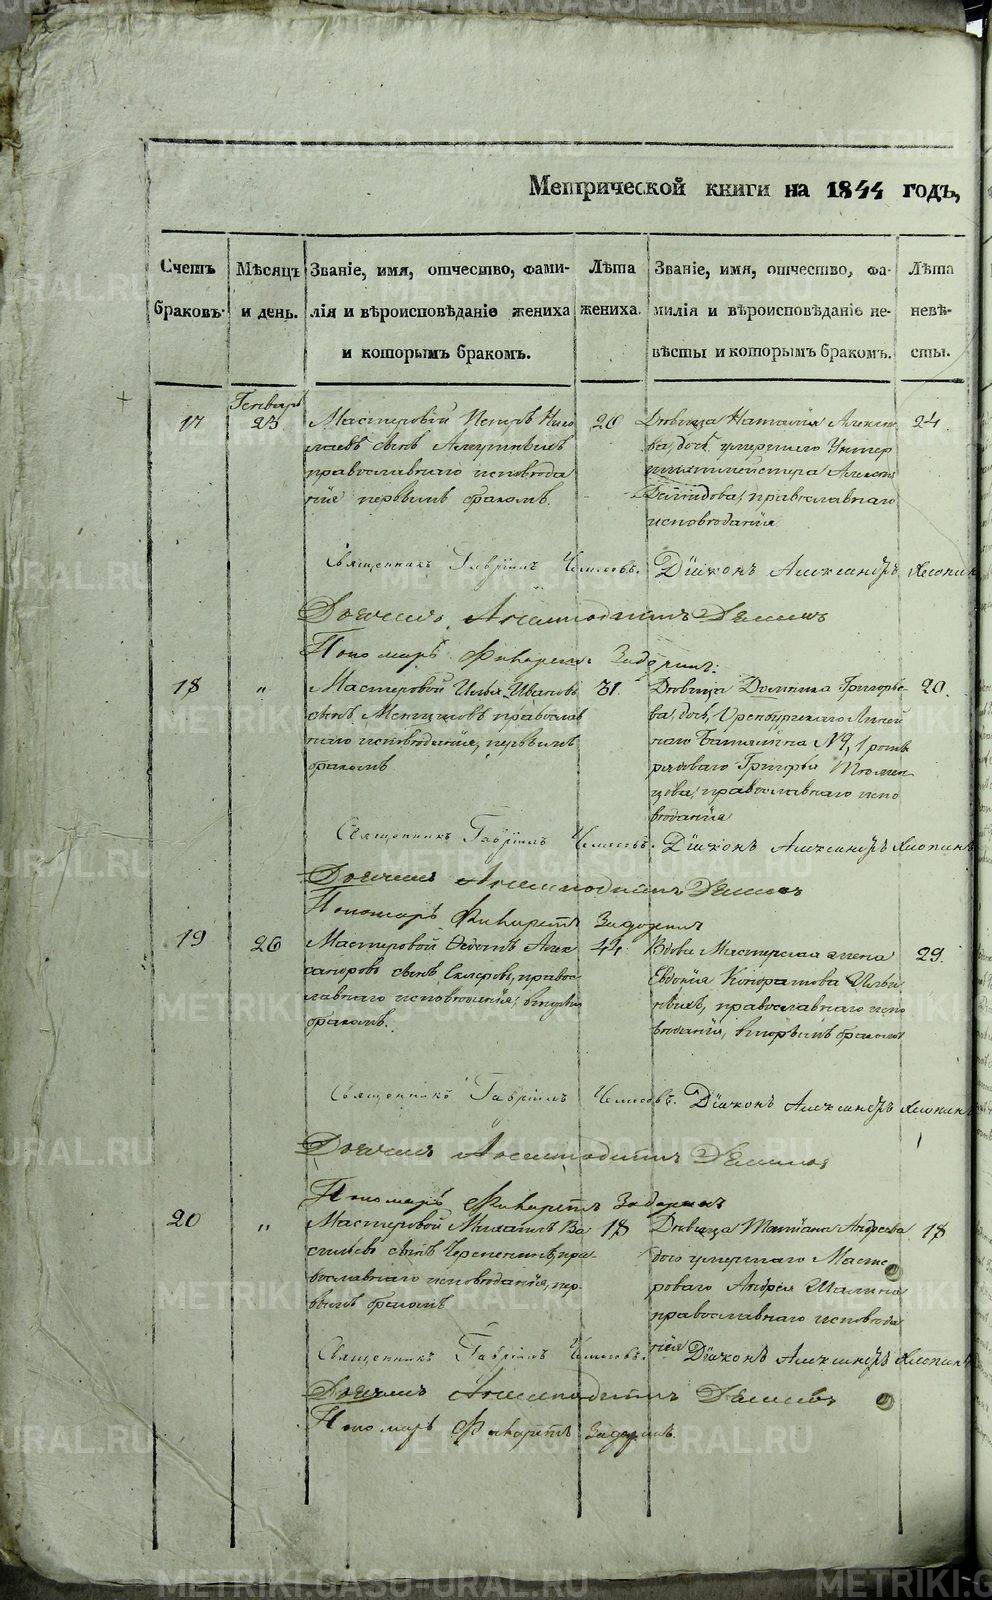 Метрической книги на 1844 годъ,
Счетъ браковъ.
Мѣсяцъ и день.
Званіе, имя, отчество, фами-
лія и вѣроисповѣданіе жениха
и которымъ бракомъ.
Лѣта
жениха.
Званіе, имя, отчество, фа-
милія и вѣроисповѣданіе не-
вѣсты и которымъ бракомъ.
Лѣта
невѣ-
сты.
Генварь
17
23
Мастеровой Петръ Нико
лаевъ сынъ
православнаго исповѣда
нія первымъ бракомъ
20
Дѣвица Наталія Алексѣ
ва, дочь умершаго Унтер
шихтмейстера Алексѣя
православнаго
исповѣданія
24
Священникъ Гавріилъ Діаконъ Александръ Хлопинъ
Дьячекъ
Пономарь Филаретъ Задоринъ
18
"
Мастеровой Илья Ивановъ
сынъ православ
наго исповѣданія, первымъ
бракомъ
31.
Дѣвица Домника Григорье-
ва, дочь, Оренбургскаго Линей
наго Баталіона №9, 1 роты
рядоваго Григорья
православнаго испо
вѣданія
20.
Священникъ Гавріилъ Діаконъ Александръ Хлопинъ
Дьячекъ
Пономарь Филаретъ Задоринъ
19
26
Мастеровой Ѳедотъ Алек
сандровъ сынъ правос
лавнаго исповѣданія,
бракомъ.
44.
Вдова Мастерская жена
Евдокія Кондратова Ильи
ныхъ, православнаго испо
вѣданія, вторымъ бракомъ
29.
Священникъ Гавріилъ Діаконъ Александръ Хлопинъ
Дьячекъ
Пономарь Филаретъ Задоринъ
20
"
Мастеровой Михаилъ Ва
сильевъ сынъ пра-
вославнаго исповѣданія, пер-
вымъ бракомъ
18
Дѣвица Татіана Андреева
дочь умершаго Масте
роваго Андрея
православнаго исповѣда
нія
18
Священникъ Гавріилъ Діаконъ Александръ Хлопинъ
Дьячекъ
Пономарь Филаретъ Задоринъ.
METRIKI.GASO-URAL.RU